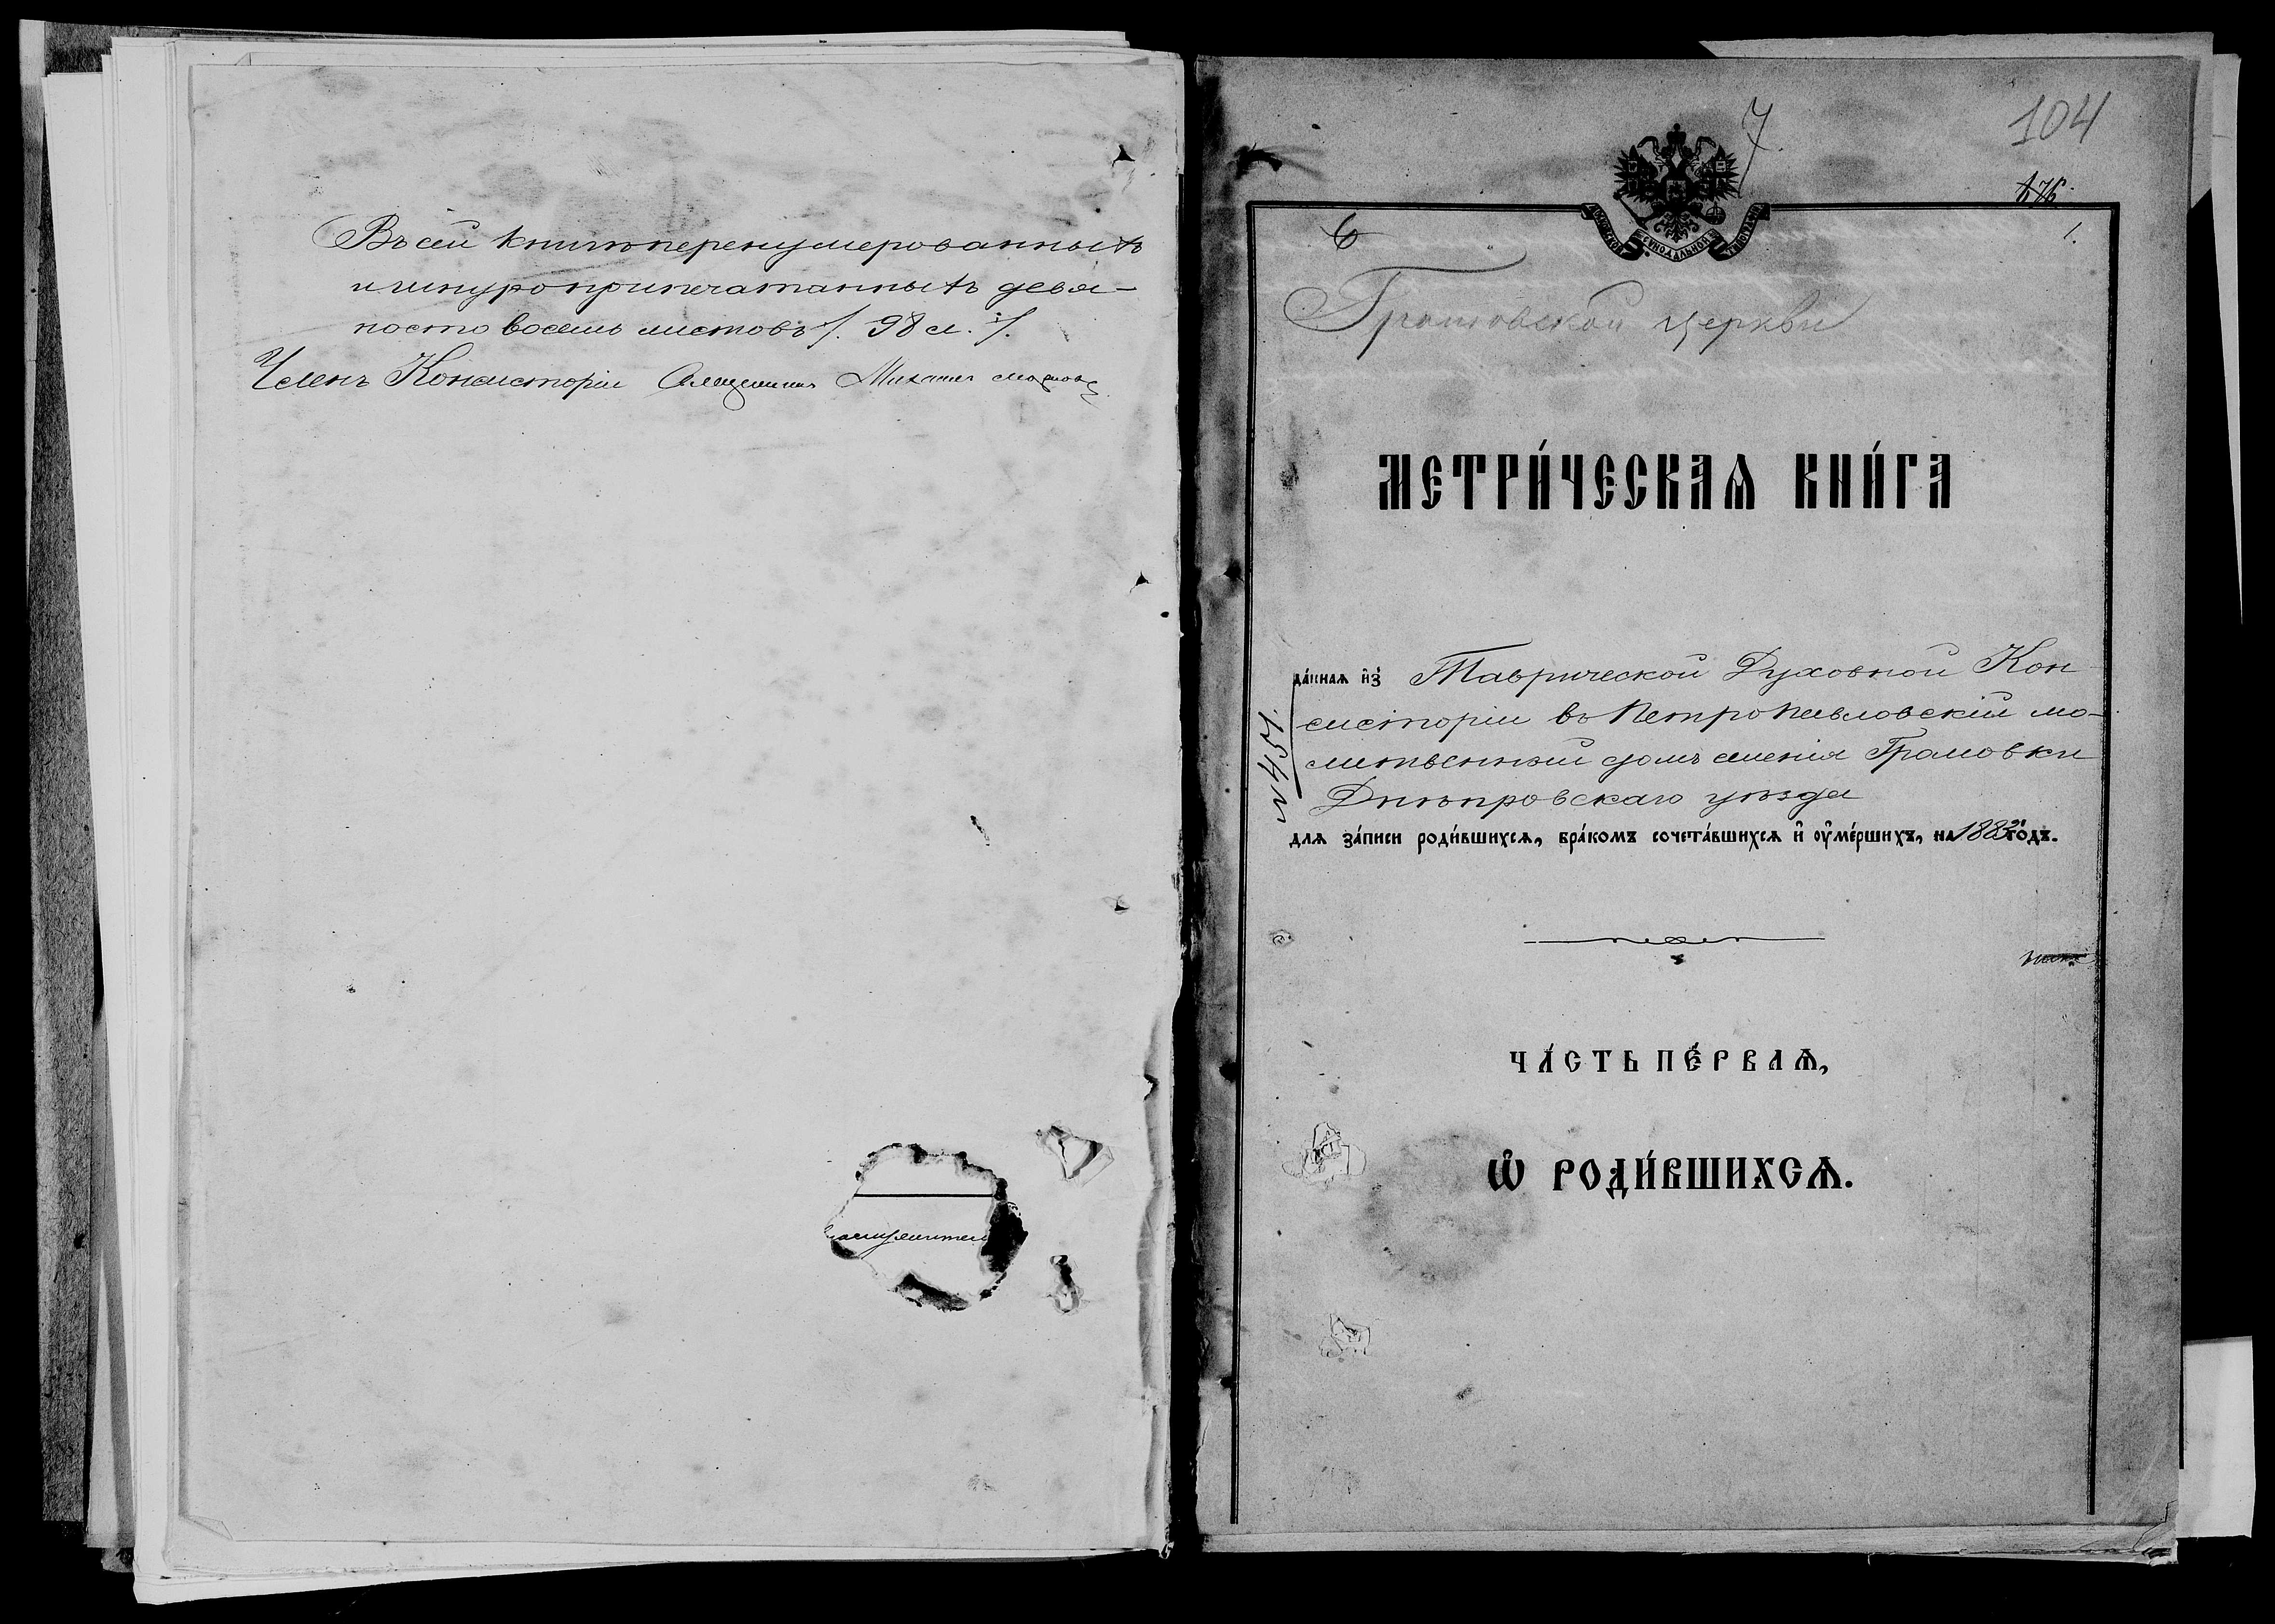 Въ сей книгѣ перенумерованныхъ
и шнуроприпечатанныхъ девя-
носто восемь листовъ /. 98 л. /.
Членъ Консисторіи Священникъ Михаилъ
104
7
6
1.
Церкви
МЕТРИ́ЧЕСКАѦ КНИ́ГА
да́ннаѧ и҆з̾ Таврической Духовной Кон-
систоріи въ Петропавловскій мо-
литвенный домъ имѣнія Громовки
Днѣпровскаго уѣзда
длѧ за́писи роди́вшихсѧ, бра́комъ сочета́вшихсѧ и҆ ᲂу҆ме́ршихъ, на 1883 го́дъ.
№ 451.
ЧА́СТЬ ПЕ́РВАѦ,
Ѽ РОДИ́ВШИХСѦ.